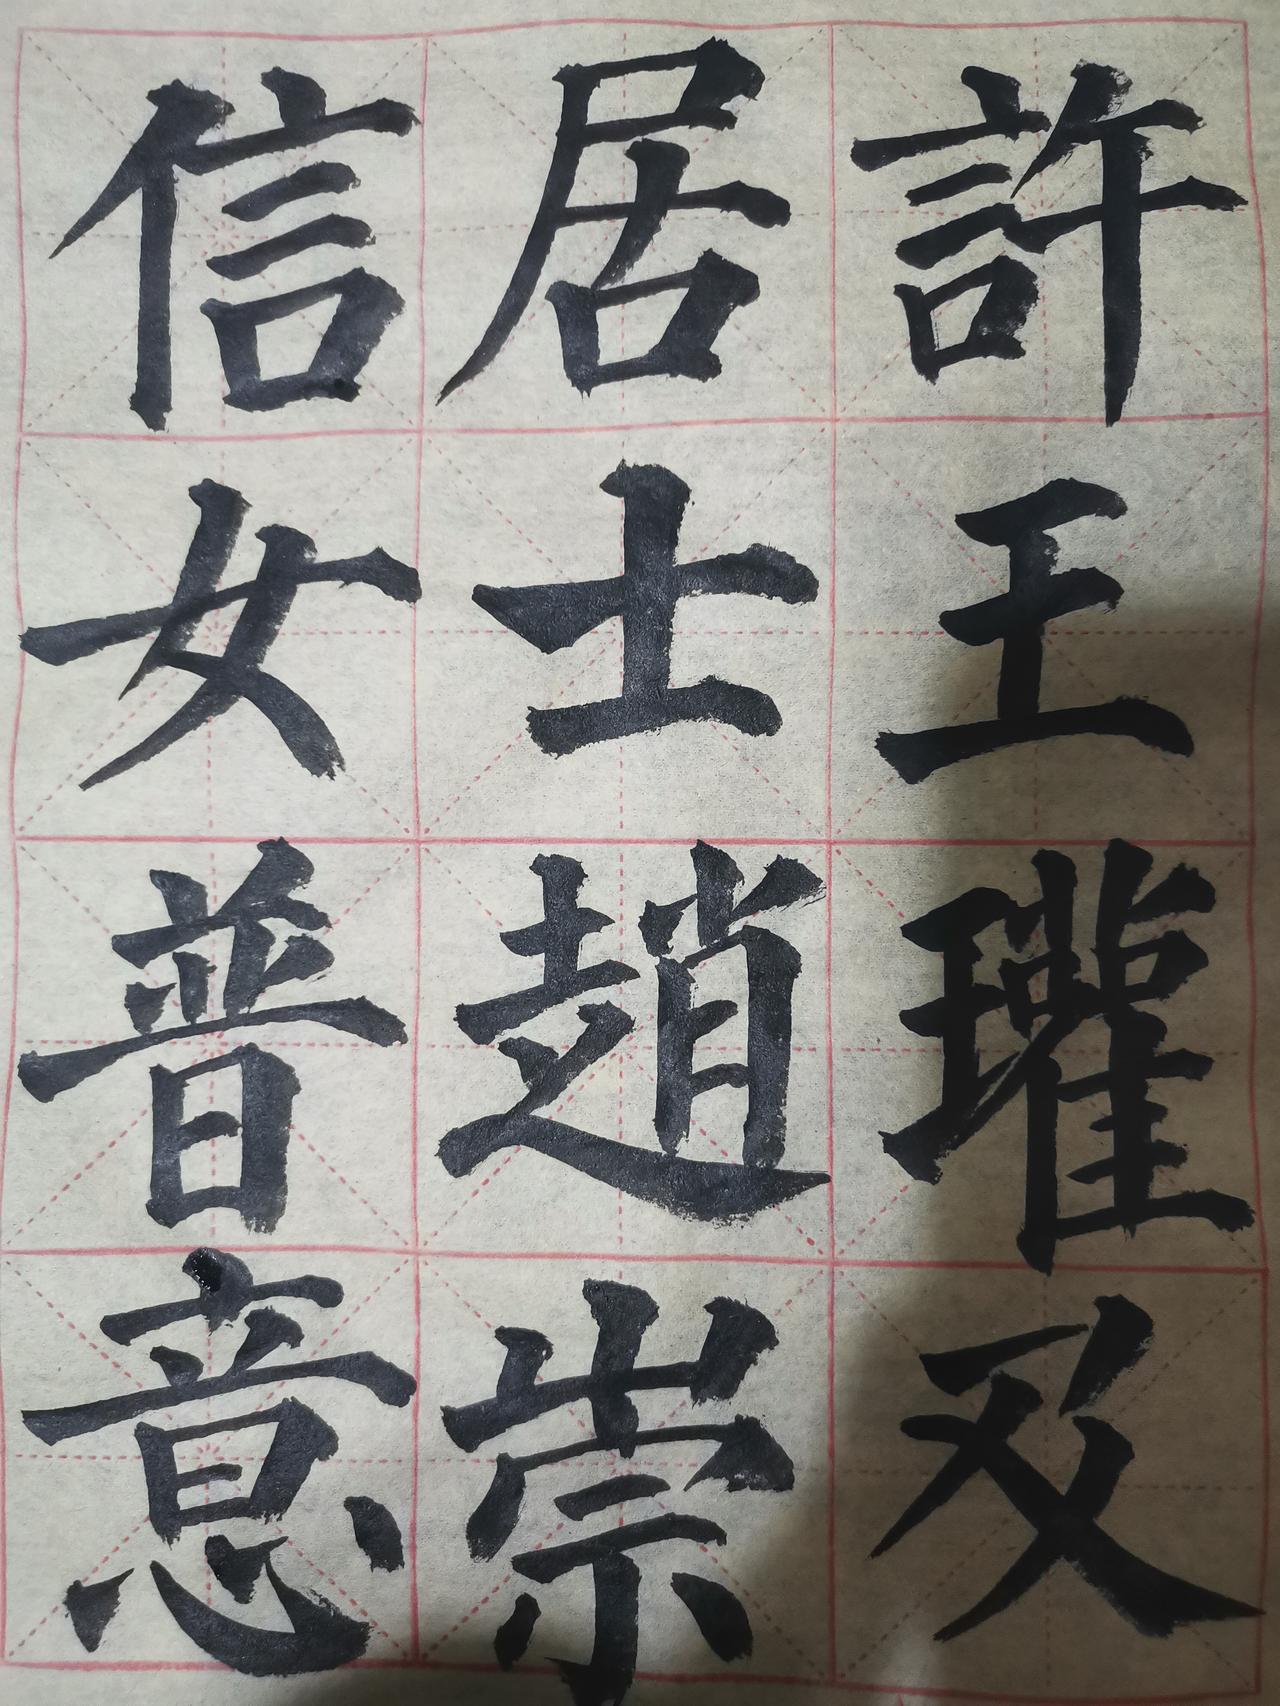 許王瓘及
居士趙崇
信女普意